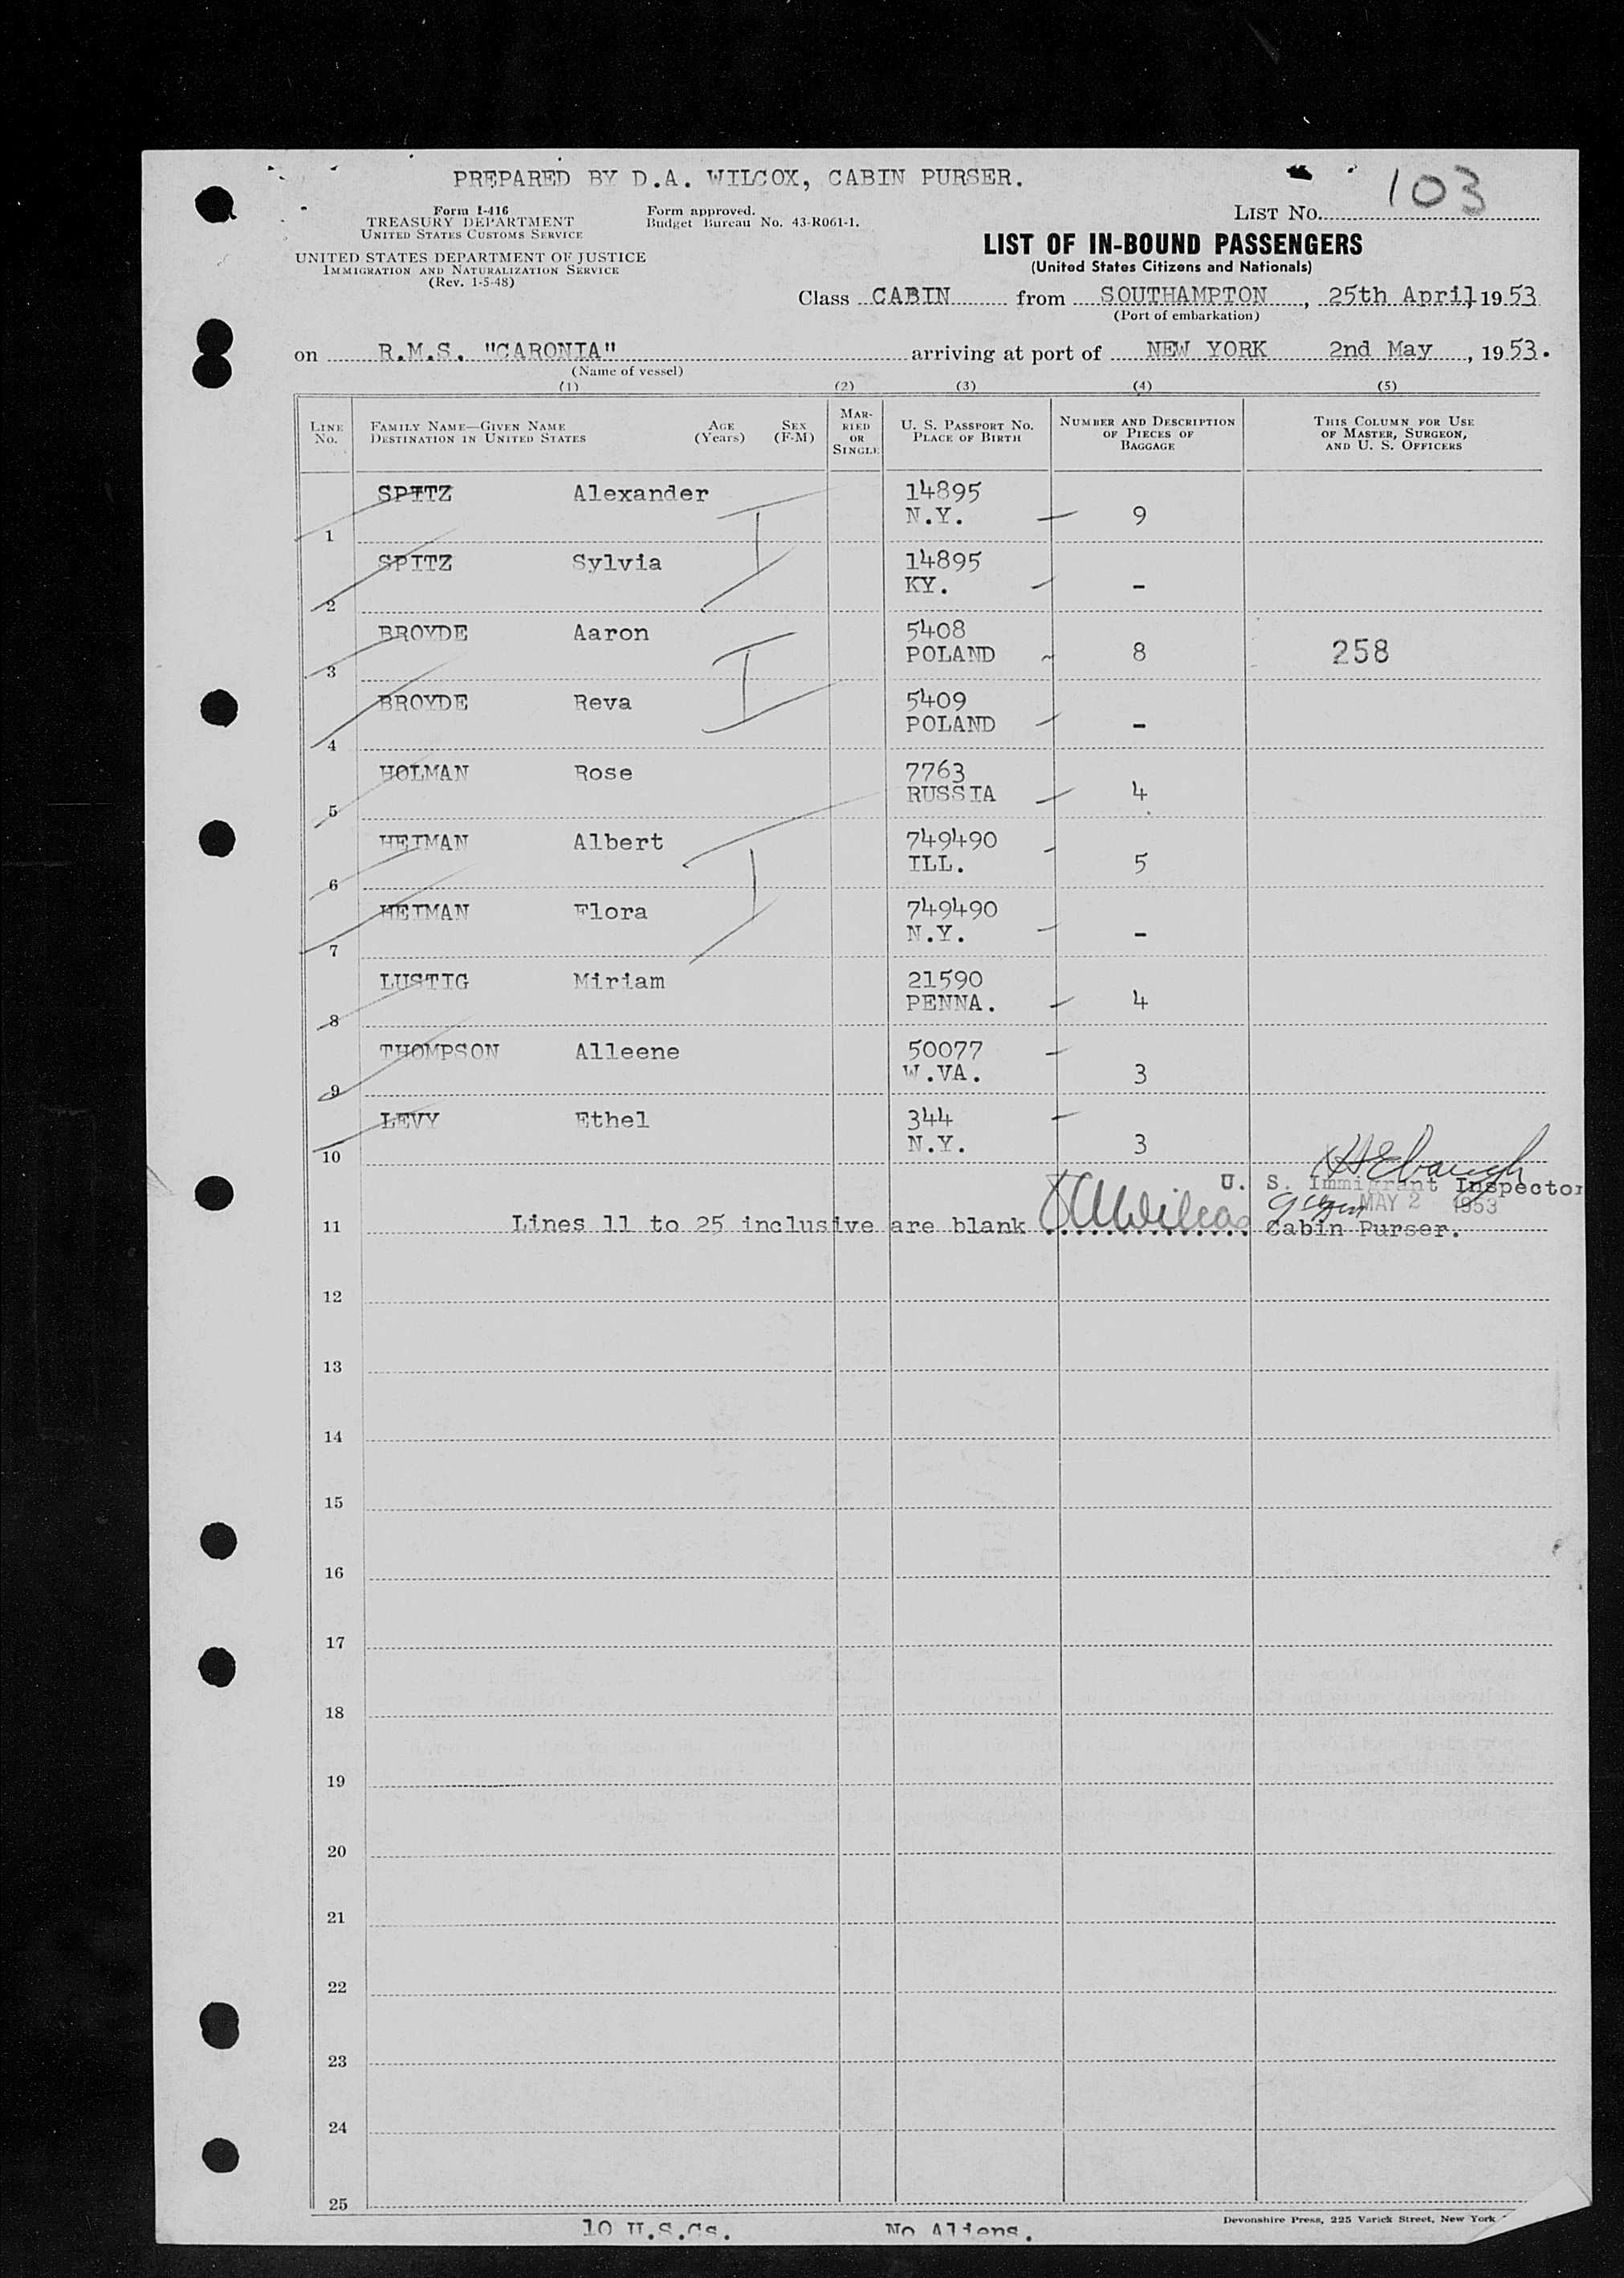 PREPARED BY D.A. WILCOX, CABIN PURSER.
Form I-416
TREASURY DEPARTMENT
UNITED STATES CUSTOMS SERVICE
UNITED STATES DEPARTMENT OF JUSTICE
IMMIGRATION AND NATURALIZATION SERVICE
(Rev. 1-5-48)
Form approved.
Budget Bureau No. 43-R061-1.
LIST NO. 103
LIST OF IN-BOUND PASSENGERS
(United States Citizens and Nationals)
Class CABIN from SOUTHAMPTON, 25th April, 1953
(Port of embarkation)
on R.M.S. "CARONIA" arriving at port of NEW YORK 2nd May, 1953.
(Name of vessel)
(1) (2) (3) (4) (5)
LINE NO.
FAMILY NAME—GIVEN NAME
DESTINATION IN UNITED STATES
AGE (Years)
SEX (F-M)
MARRIED OR SINGLE
U. S. PASSPORT NO.
PLACE OF BIRTH
NUMBER AND DESCRIPTION OF PIECES OF BAGGAGE
THIS COLUMN FOR USE OF MASTER, SURGEON, AND U. S. OFFICERS
SPITZ Alexander 14895
1 N.Y. — 9
SPITZ Sylvia 14895
2 KY. — -
BROYDE Aaron 5408
3 POLAND 8 258
BROYDE Reva 5409
4 POLAND — -
HOLMAN Rose 7763
5 RUSSIA — 4
HEIMAN Albert 749490
6 ILL. 5
HEIMAN Flora 749490
7 N.Y. — -
LUSTIG Miriam 21590
8 PENNA. — 4
THOMPSON Alleene 50077
9 W.VA. 3
LEVY Ethel 344
10 N.Y. 3
U. S. Immigrant Inspector
MAY 2 1953
11 Lines 11 to 25 inclusive are blank DAWilcox Cabin Purser.
12
13
14
15
16
17
18
19
20
21
22
23
24
25
10 U.S.Cs. No Aliens.
Devonshire Press, 225 Varick Street, New York